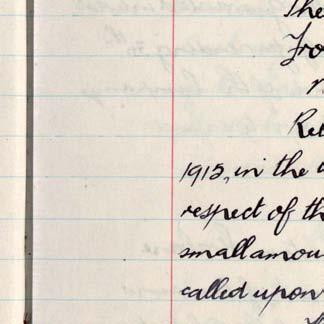 The
Fro
Re
1915, in the
respect of th
small amou
called upon